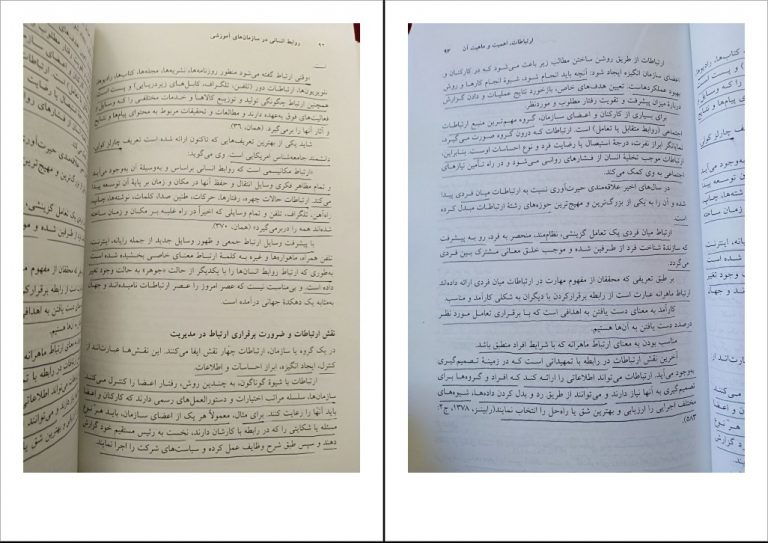 ۹۲ روابط انسانی در سازمان‌های آموزشی
«وقتی ارتباط گفته می‌شود منظور روزنامه‌ها، نشریه‌ها، مجله‌ها، کتاب‌ها، رادیوها،
تلویزیون‌ها، ارتباطات دور (تلفن، تلگراف، کابل‌های زیردریایی) و پست است و
همچنین ارتباط چگونگی تولید و توزیع کالاها و خدمات مختلفی را که وسایل و
فعالیت‌های فوق به‌عهده دارند و مطالعات و تحقیقات مربوط به محتوای پیام‌ها و نتایج
و آثار آنها را برمی‌گیرد» (همان، ۳۶).
شاید یکی از بهترین تعریف‌هایی که تاکنون ارائه شده است تعریف چارلز کولی
دانشمند جامعه‌شناس آمریکایی است. وی می‌گوید:
«ارتباط مکانیسمی است که روابط انسانی براساس و به‌وسیلهٔ آن به‌وجود می‌آید
و تمام مظاهر فکری وسایل انتقال و حفظ آنها در مکان و زمان بر پایهٔ آن توسعه پیدا
می‌کند. ارتباطات حالات چهره، رفتارها، حرکات، طنین صدا، کلمات، نوشته‌ها، چاپ،
راه‌آهن، تلگراف، تلفن و تمام وسایلی که اخیراً در راه غلبه بر مکان و زمان ساخته
شده‌اند همه را دربرمی‌گیرد» (همان، ۳۷۰).
با پیشرفت وسایل ارتباط جمعی و ظهور وسایل جدید از جمله رایانه، اینترنت،
تلفن همراه، ماهواره‌ها و غیره به کلمهٔ ارتباط معنای خاصی بخشیده شده است
به‌طوری که ارتباط روابط انسان‌ها را با یکدیگر از حالت «جوهر» به حالت وجود تغییر
داده است. و بی‌مناسبت نیست که عصر امروز را عصر ارتباطات نامیده‌اند و جهان
به‌مثابه یک دهکدهٔ جهانی درآمده است.
نقش ارتباطات و ضرورت برقراری ارتباط در مدیریت
در یک گروه یا سازمان، ارتباطات چهار نقش ایفا می‌کنند. این نقش‌ها عبارت‌اند از
کنترل، ایجاد انگیزه، ابراز احساسات و اطلاعات.
ارتباطات با شیوهٔ گوناگون، به چندین روش، رفتار اعضا را کنترل می‌کند
سازمان‌ها، سلسله مراتب اختیارات و دستورالعمل‌های رسمی دارند که کارکنان و اعضا
باید آنها را رعایت کنند. برای مثال، معمولاً هر یک از اعضای سازمان، باید هر نوع
مسئله یا شکایتی را که در رابطه با کارشان دارند، نخست به رئیس مستقیم خود گزارش
دهند و سپس طبق شرح وظایف عمل کرده و سیاست‌های شرکت را اجرا نمایند.
ارتباطات، اهمیت و ماهیت آن ۹۳
ارتباطات از طریق روشن ساختن مطالب زیر باعث می‌شود که در کارکنان و
اعضای سازمان انگیزه ایجاد شود: آنچه باید انجام شود، شیوهٔ انجام کارها و روش
بهبود عملکردهاست. تعیین هدف‌های خاص، بازخورد نتایج عملیات و دادن گزارش
دربارهٔ میزان پیشرفت و تقویت رفتار مطلوب و موردنظر
برای بسیاری از کارکنان و اعضای سازمان، گروه مهم‌ترین منبع ارتباطات
اجتماعی (روابط متقابل یا تعامل) است. ارتباطات که درون گروه صورت می‌گیرد،
نمایانگر ابراز نفرت، درجهٔ استیصال یا رضایت فرد و نوع احساسات است. بنابراین،
ارتباطات موجب تخلیهٔ انسان از فشارهای روانی می‌شود و در راه تأمین نیازهای
اجتماعی به وی کمک می‌کند.
در سال‌های اخیر علاقه‌مندی حیرت‌آوری نسبت به ارتباطات میان فردی پیدا
شده و آن را به یکی از بزرگ‌ترین و مهیج‌ترین حوزه‌های رشتهٔ ارتباطات مبدل کرده
است.
ارتباط میان فردی یک تعامل گزینشی، نظام‌مند، منحصر به فرد، رو به پیشرفت
که سازندهٔ شناخت فرد از طرفین شده و موجب خلق معانی مشترک بین فردی
می‌گردد.
بر طبق تعریفی که محققان از مفهوم مهارت در ارتباطات میان فردی ارائه داده‌اند
ارتباط ماهرانه عبارت است از رابطه برقرارکردن با دیگران به شکلی کارآمد و مناسب.
کارآمد به معنای دست یافتن به اهدافی است که با برقراری تعامل مورد نظر
درصدد دست یافتن به آن‌ها هستیم.
مناسب بودن به معنای ارتباط ماهرانه که با شرایط افراد منطبق باشد.
آخرین نقش ارتباطات در رابطه با تمهیداتی است که در زمینهٔ تصمیم‌گیری
به‌وجود می‌آید. ارتباطات می‌تواند اطلاعاتی را ارائه کند که افراد و گروه‌ها برای
تصمیم‌گیری به آنها نیاز دارند و می‌توانند از طریق رد و بدل کردن داده‌ها، شیوه‌های
مختلف اجرایی را ارزیابی و بهترین شق یا راه‌حل را انتخاب نمایند (رابینز، ۱۳۷۸، ج۲:
۵۸۳).